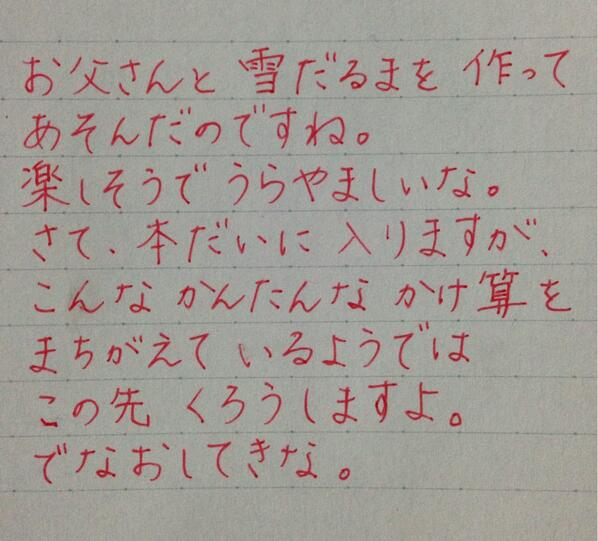 お父さんと 雪だるまを 作って
あそんだのですね。
楽しそうで うらやましいな。
さて、本だいに 入りますが、
こんな かんたんな かけ算を
まちがえて いるようでは
この先 くろうしますよ。
でなおしてきな。